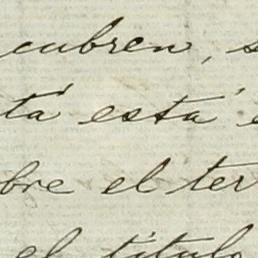 cubren, s
ta está e
bre el ter
el título